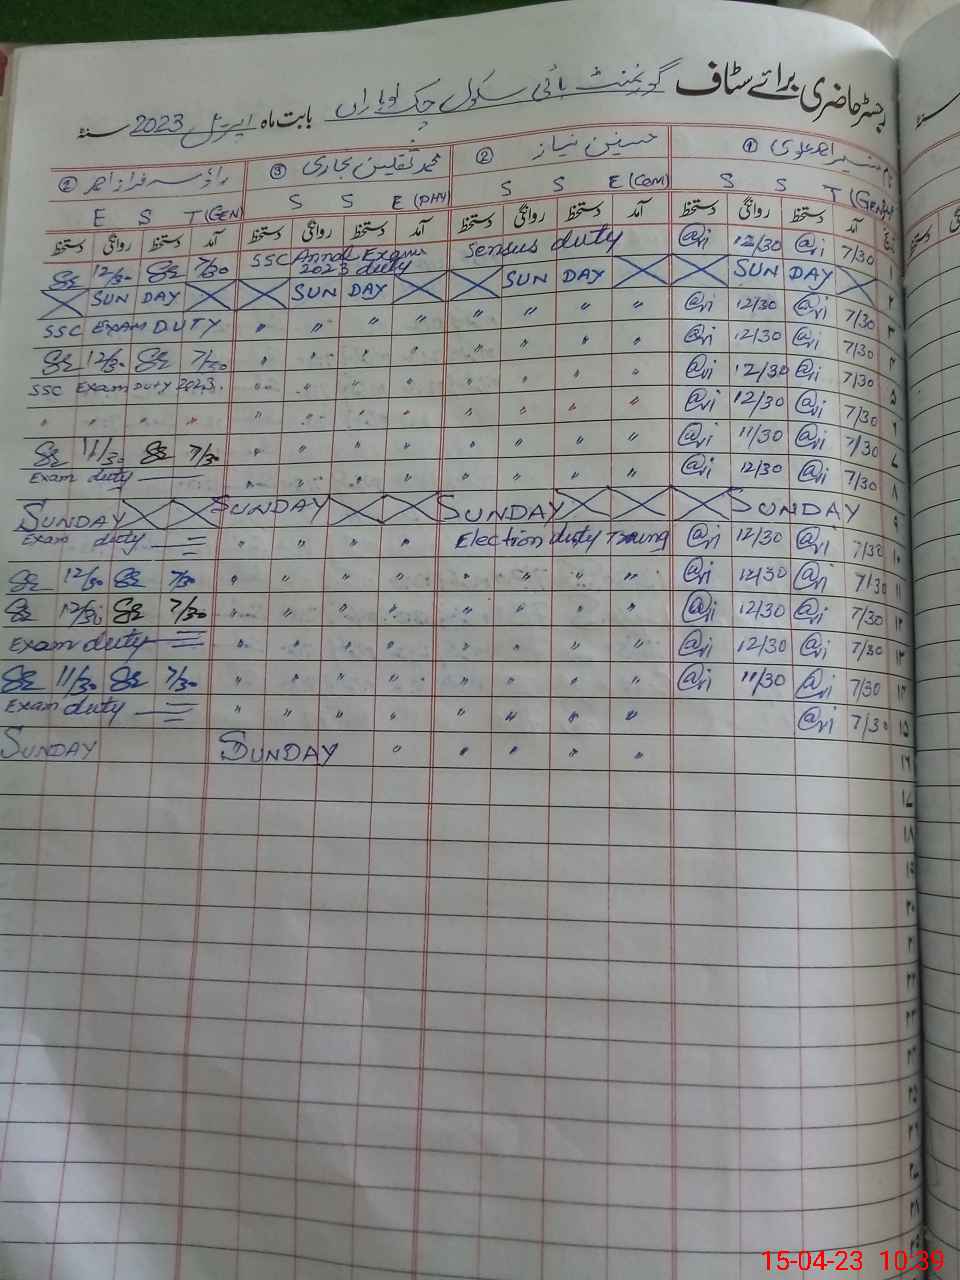 رجسٹر حاضری برائے سٹاف گورنمنٹ ہائی سکول چک لوہاراں بابت ماہ اپریل 2023 سنہ
① حسنین نیاز ② محمد ثقلین بخاری ③ راؤ سرفراز احمد ②
S S T (Gen) S S E (Com) S S E (PHY) E S T (GEN)
آمد دستخط روانگی دستخط آمد دستخط روانگی دستخط آمد دستخط روانگی دستخط آمد دستخط روانگی دستخط
۱ 7/30 12/30 Sensus duty SSC Annal Exams 2023 duty 7/30 12/30
۲ SUN DAY SUN DAY SUN DAY SUN DAY
۳ 7/30 12/30 " " " " " " " " SSC EXAM DUTY
۴ 7/30 12/30 " " " " " " " " 7/30 12/30
۵ 7/30 12/30 " " " " " " " " SSC Exam DUTY 2023.
۶ 7/30 12/30 " " " " " " " " " " " "
۷ 7/30 11/30 " " " " " " " " 7/30 11/30
۸ 7/30 12/30 " " " " " " " " Exam duty
۹ SUNDAY SUNDAY SUNDAY SUNDAY
۱۰ 7/30 12/30 Election duty Traning " " " " Exam duty
۱۱ 7/30 12/30 " " " " " " " " 7/30 12/30
۱۲ 7/30 12/30 " " " " " " " " 7/30 12/30
۱۳ 7/30 12/30 " " " " " " " " Exam duty
۱۴ 7/30 11/30 " " " " " " " " 7/30 11/30
۱۵ 7/30 " " " " " " " " Exam duty
۱۶ " " " " " SUNDAY SUNDAY
۱۷
۱۸
۱۹
۲۰
۲۱
۲۲
۲۳
۲۴
۲۵
۲۶
۲۷
۲۸
۲۹
15-04-23 10:39